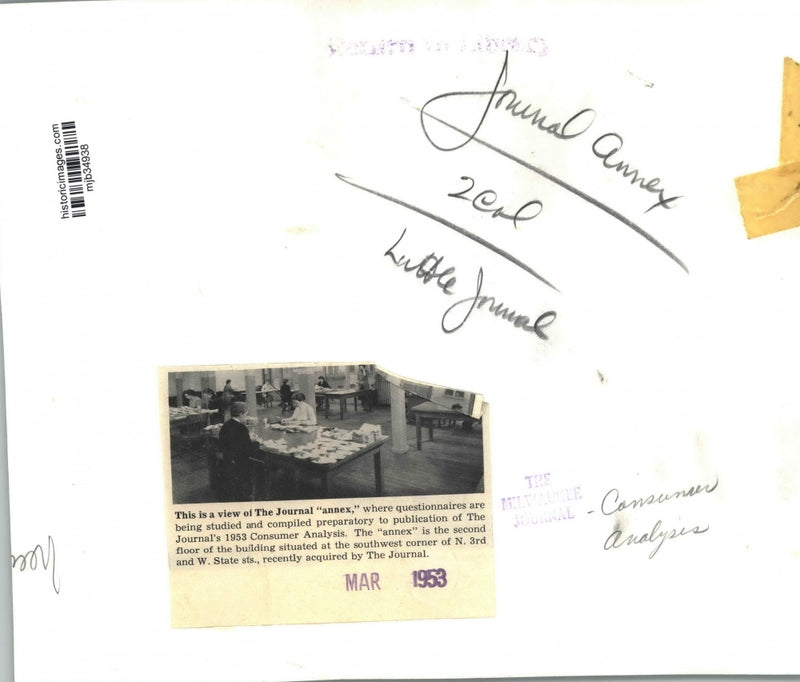 Return to Library
Journal Annex
2 Col
Little Journal
historicimages.com
mjb34938
This is a view of The Journal "annex," where questionnaires are
being studied and compiled preparatory to publication of The
Journal's 1953 Consumer Analysis. The "annex" is the second
floor of the building situated at the southwest corner of N. 3rd
and W. State sts., recently acquired by The Journal.
MAR 1953
THE
MILWAUKEE
JOURNAL
- Consumer
Analysis